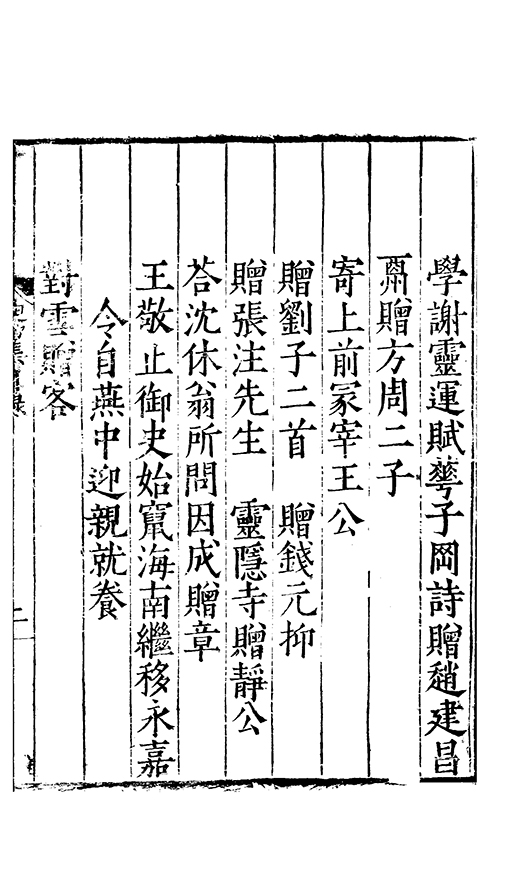 學謝靈運賦蕚子岡詩贈趙建昌
鬲贈方周二子
寄上前冢宰王公
贈劉子二首　贈錢元抑
贈張注先生　靈隱寺贈靜公
荅沈休翁所問因成贈章
王敬止御史始竄海南繼移永嘉
令自燕中迎親就養
對雪贈客
二